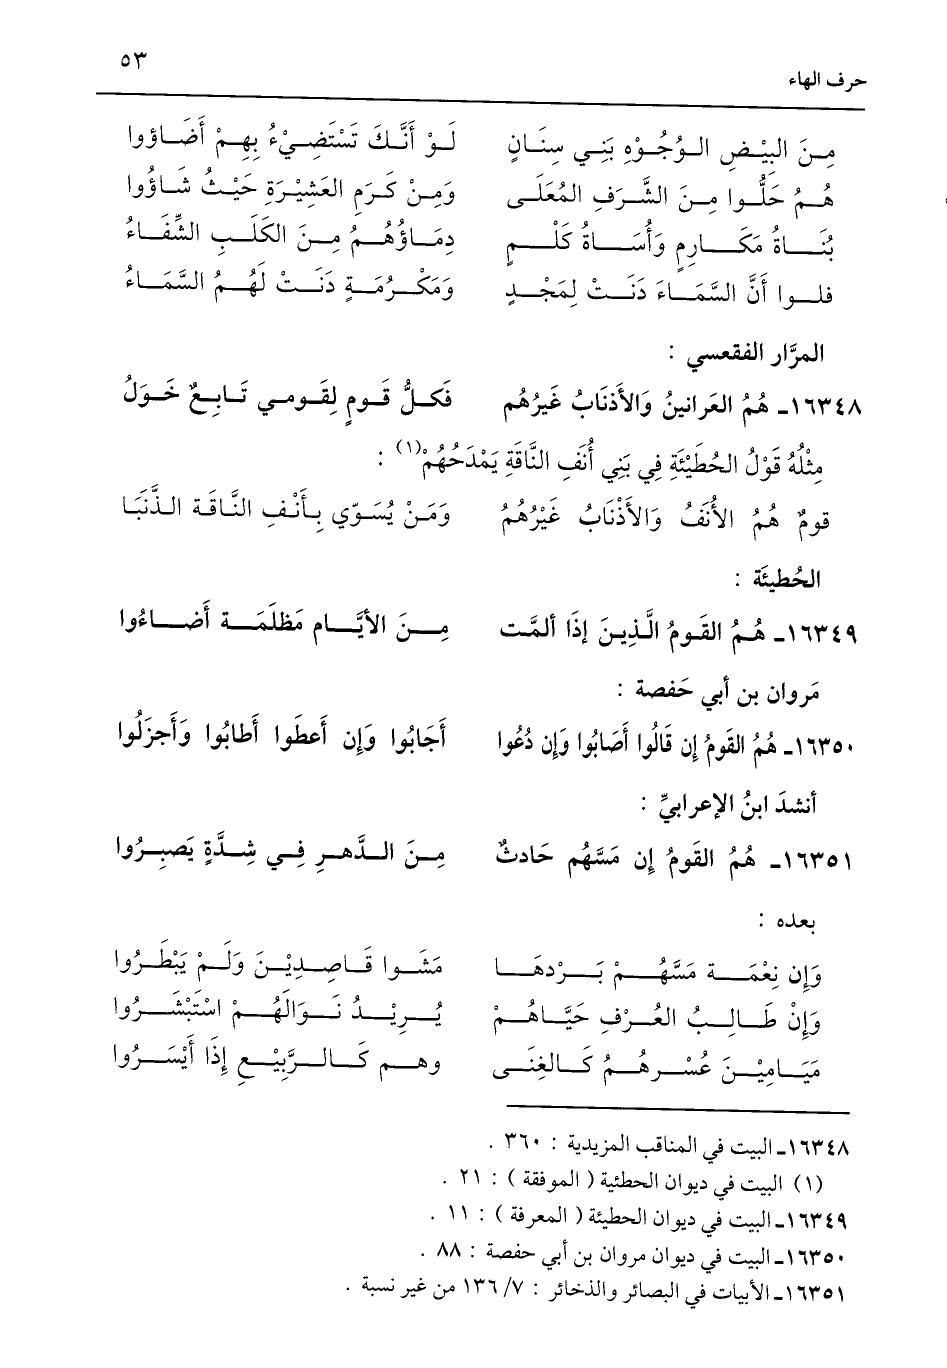 ٥٣
حرف الهاء
مِنَ البِيْضِ الوُجُوْهِ بَنِي سِنَانٍ لَوْ أَنَّكَ تَسْتَضِيْءُ بِهِمْ أَضَاؤوا
هُمُ حَلُّوا مِنَ الشَّرَفِ المُعَلَى وَمِنْ كَرَمِ العَشِيْرَةِ حَيْثُ شَاؤُوا
بُنَاةُ مَكَارِمٍ وَأُسَاةُ كَلْمٍ دِمَاؤُهُمُ مِنَ الكَلَبِ الشِّفَاءُ
فلوا أَنَّ السَّمَاءَ دَنَتْ لِمَجْدٍ وَمَكْرُمَةٍ دَنَتْ لَهُمُ السَّمَاءُ
المرَّار الفقعسي :
١٦٣٤٨ـ هُمُ العَرانينُ وَالأَذنَابُ غَيرُهُم فَكلُّ قَومٍ لِقَومي تَابِعٌ خَوَلُ
مِثْلُهُ قَوْلُ الحُطَيْئَةِ فِي بَنِي أُنَفِ النَّاقَةِ يَمْدَحُهُمْ(١) :
قومٌ هُمُ الأُنَفُ وَالأَذْنَابُ غَيْرُهُمُ وَمَنْ يُسَوّي بِأَنْفِ النَّاقَةِ الذَّنَبَا
الحُطيئَة :
١٦٣٤٩ـ هُمُ القَومُ الَّذِينَ إذَا ألمَّت مِنَ الأيَّامِ مَظلَمَة أَضاءُوا
مَروان بن أبي حَفصة :
١٦٣٥٠ـ هُمُ القَومُ إن قَالُوا أَصَابُوا وَإن دُعُوا أَجَابُوا وَإن أَعطَوا أَطابُوا وَأَجزَلُوا
أنشدَ ابنُ الإعرابيِّ :
١٦٣٥١ـ هُمُ القَومُ إن مَسَّهُم حَادثٌ مِنَ الدَّهرِ فِي شِدَّةٍ يَصبِرُوا
بعده :
وَإن نِعْمَة مَسَّهُمْ بَرْدهَا مَشَوا قَاصِدِيْنَ وَلَمْ يَبْطَرُوا
وَإنْ طَالِبُ العُرْفِ حَيَّاهُمْ يُرِيْدُ نَوَالَهُمْ اسْتَبْشَرُوا
مَيَامِيْنَ عُسْرهُمُ كَالغِنَى وهم كَالرَّبِيْعِ إِذَا أَيْسَرُوا
١٦٣٤٨ـ البيت في المناقب المزيدية : ٣٦٠ .
(١) البيت في ديوان الحطئية ( الموفقة ) : ٢١ .
١٦٣٤٩ـ البيت في ديوان الحطيئة ( المعرفة ) : ١١ .
١٦٣٥٠ـ البيت في ديوان مروان بن أبي حفصة : ٨٨ .
١٦٣٥١ـ الأبيات في البصائر والذخائر : ٧/ ١٣٦ من غير نسبة .